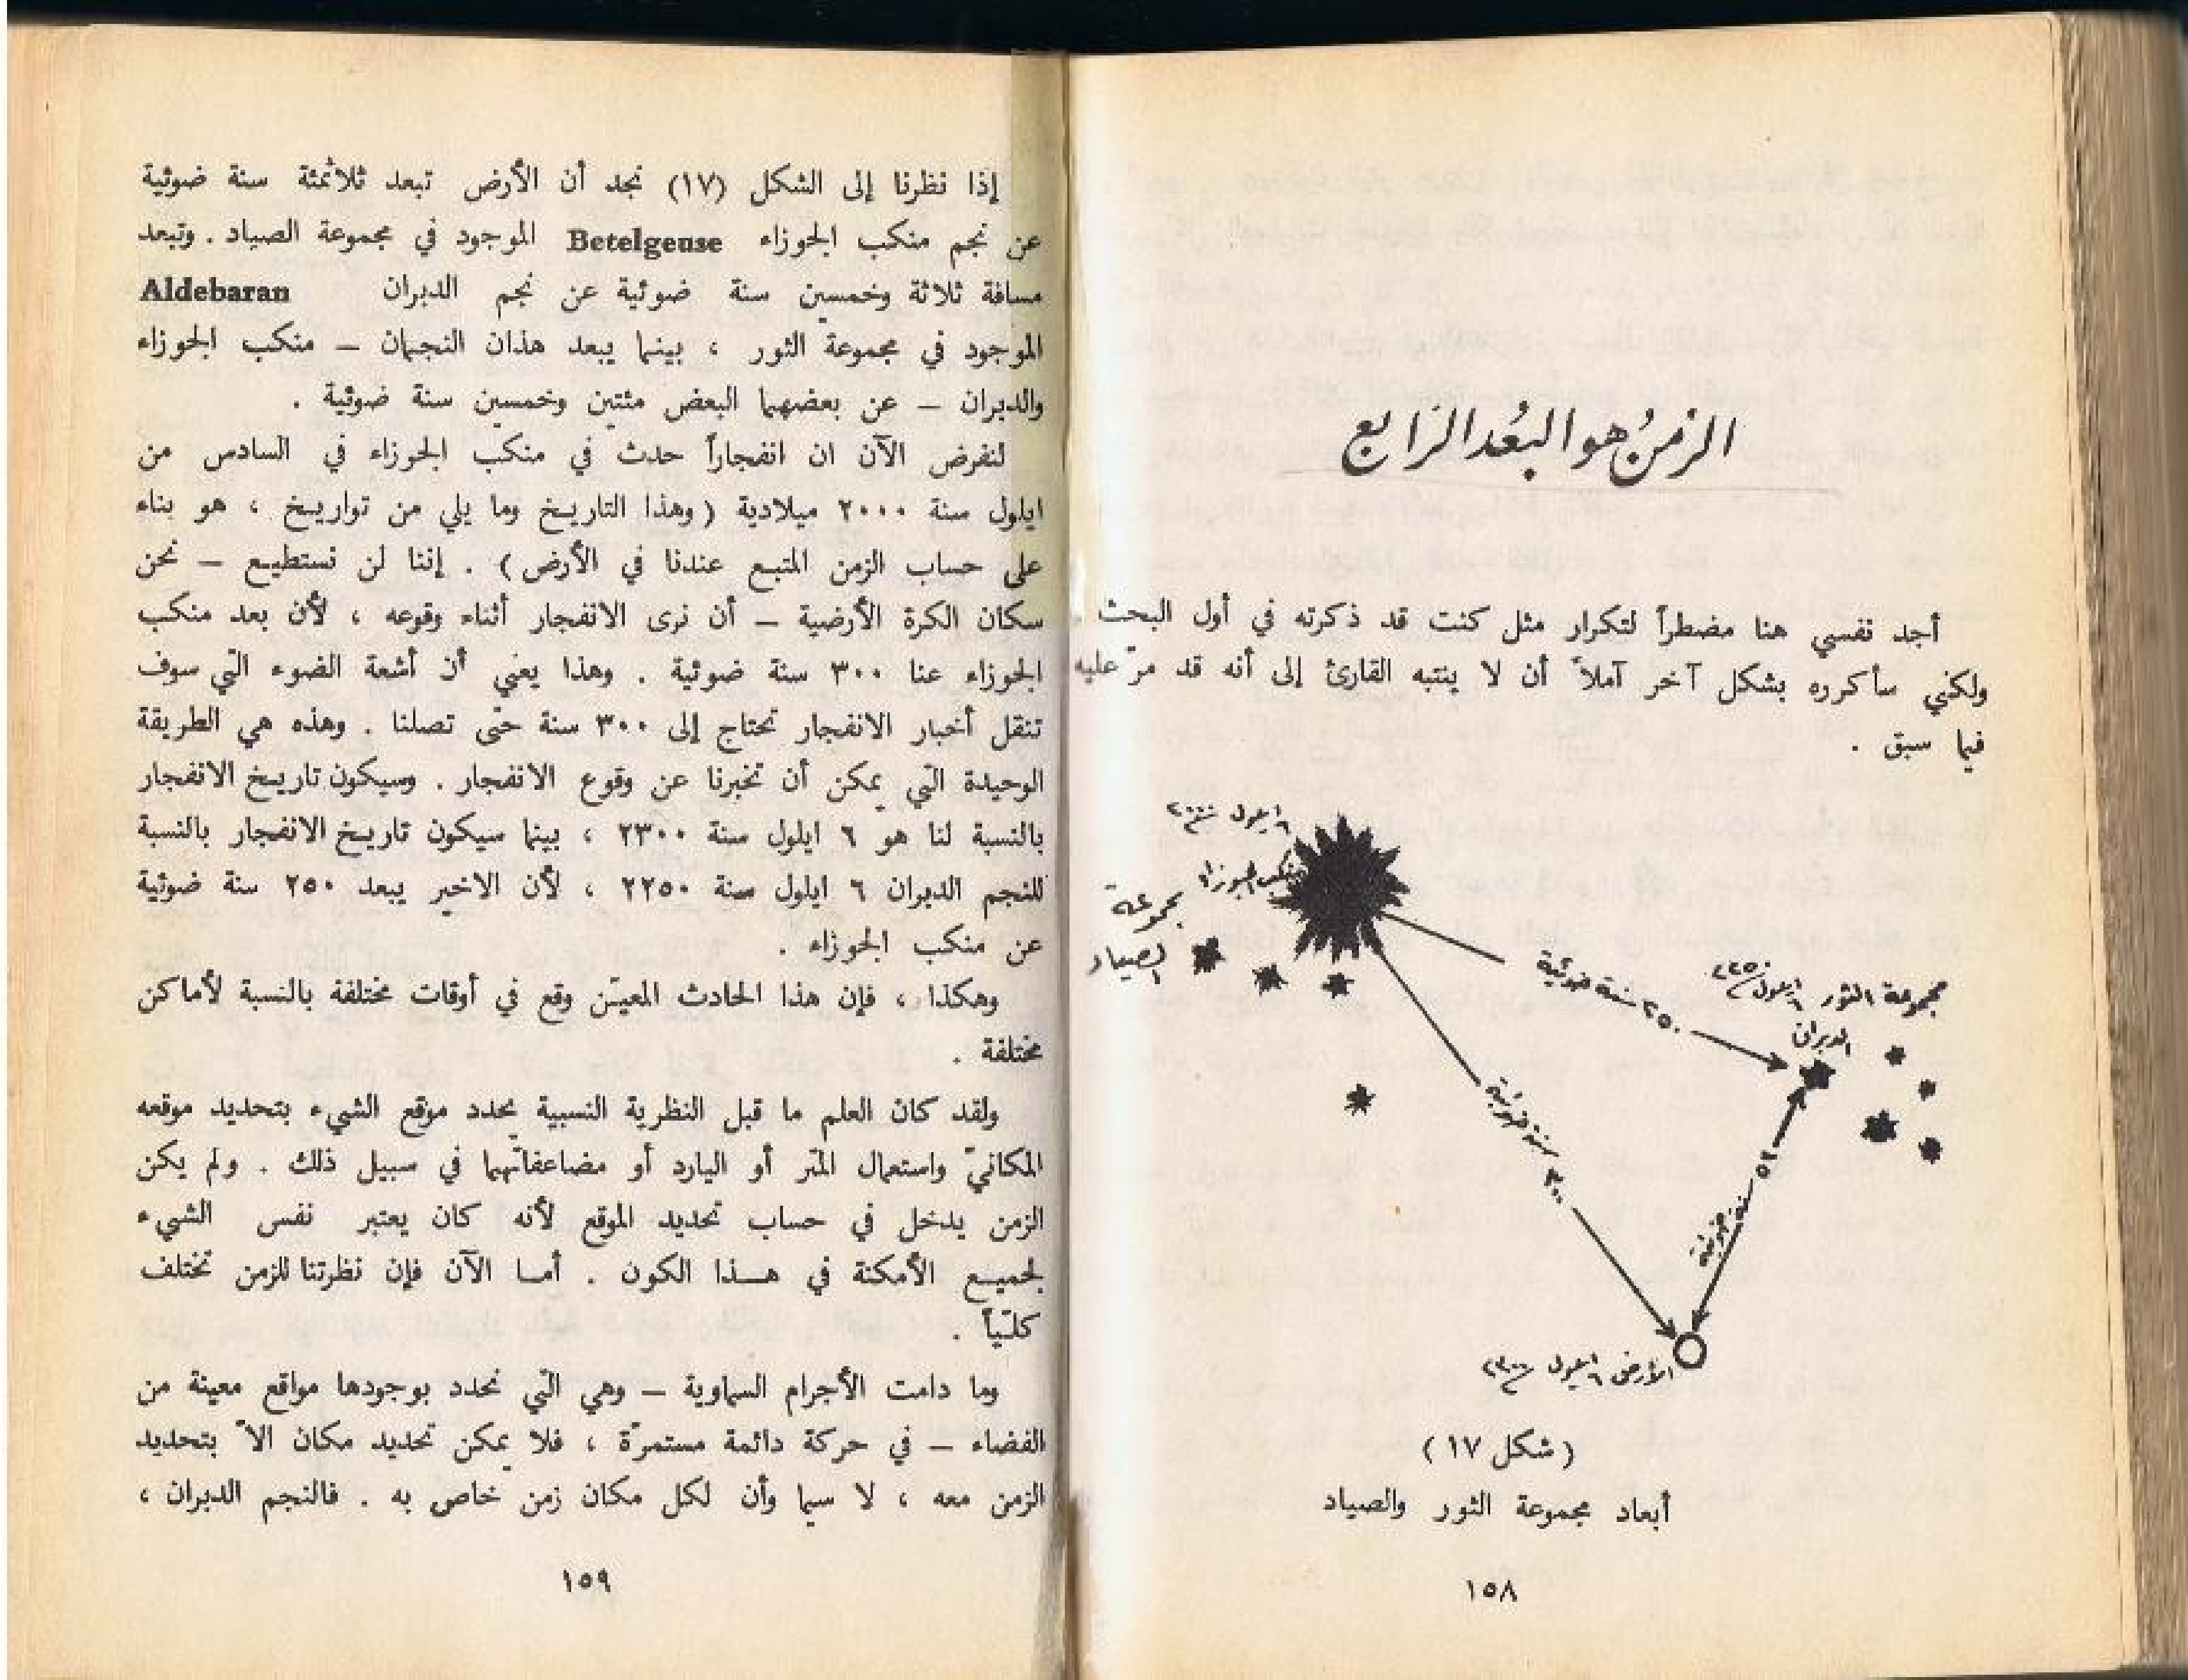 الزمنُ هو البُعد الرّابع
أجد نفسي هنا مضطراً لتكرار مثل كنت قد ذكرته في أول البحث .
ولكني سأكرره بشكل آخر آملاً أن لا ينتبه القارئ إلى أنه قد مرّ عليه
فيما سبق .
٦ ايلول سنة ٢٠٠٠
منكب الجوزاء
مجموعة
الصياد
٢٥٠ سنة ضوئية
مجموعة الثور ٦ ايلول سنة ٢٢٥٠
الدبران
٣٠٠ سنة ضوئية
٥٣ سنة ضوئية
الأرض ٦ ايلول سنة ٢٣٠٠
( شكل ١٧ )
أبعاد مجموعة الثور والصياد
١٥٨
إذا نظرنا إلى الشكل (١٧) نجد أن الأرض تبعد ثلاثمئة سنة ضوئية
عن نجم منكب الجوزاء Betelgeuse الموجود في مجموعة الصياد . وتبعد
مسافة ثلاثة وخمسين سنة ضوئية عن نجم الدبران Aldebaran
الموجود في مجموعة الثور ، بينما يبعد هذان النجمان – منكب الجوزاء
والدبران – عن بعضهما البعض مئتين وخمسين سنة ضوئية .
لنفرض الآن ان انفجاراً حدث في منكب الجوزاء في السادس من
ايلول سنة ٢٠٠٠ ميلادية ( وهذا التاريخ وما يلي من تواريخ ، هو بناء
على حساب الزمن المتبع عندنا في الأرض ) . إننا لن نستطيع – نحن
سكان الكرة الأرضية – أن نرى الانفجار أثناء وقوعه ، لأن بعد منكب
الجوزاء عنا ٣٠٠ سنة ضوئية . وهذا يعني أن أشعة الضوء التي سوف
تنقل أخبار الانفجار تحتاج إلى ٣٠٠ سنة حتى تصلنا . وهذه هي الطريقة
الوحيدة التي يمكن أن تخبرنا عن وقوع الانفجار . وسيكون تاريخ الانفجار
بالنسبة لنا هو ٦ ايلول سنة ٢٣٠٠ ، بينما سيكون تاريخ الانفجار بالنسبة
للنجم الدبران ٦ ايلول سنة ٢٢٥٠ ، لأن الاخير يبعد ٢٥٠ سنة ضوئية
عن منكب الجوزاء .
وهكذا ، فإن هذا الحادث المعيّن وقع في أوقات مختلفة بالنسبة لأماكن
مختلفة .
ولقد كان العلم ما قبل النظرية النسبية يحدد موقع الشيء بتحديد موقعه
المكانيّ واستعمال المتر أو اليارد أو مضاعفاتهما في سبيل ذلك . ولم يكن
الزمن يدخل في حساب تحديد الموقع لأنه كان يعتبر نفس الشيء
لجميع الأمكنة في هذا الكون . أما الآن فإن نظرتنا للزمن تختلف
كلّياً .
وما دامت الأجرام السماوية – وهي التي نحدد بوجودها مواقع معينة من
الفضاء – في حركة دائمة مستمرّة ، فلا يمكن تحديد مكان الاّ بتحديد
الزمن معه ، لا سيما وأن لكل مكان زمن خاص به . فالنجم الدبران ،
١٥٩